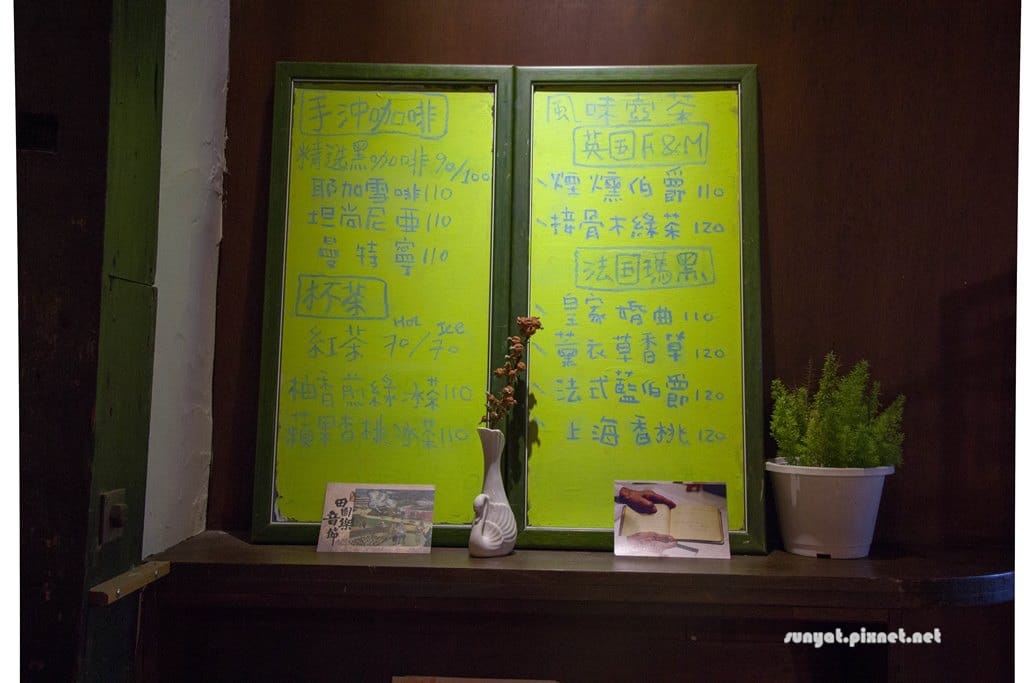 手沖咖啡
精选黑咖啡 90/100
耶加雪啡 110
坦尚尼亞 110
曼特寧 110
杯茶
Hot Ice
紅茶 70/70
柚香煎綠冰茶 110
蘋果杏桃冰茶 110
風味壺茶
英国 F&M
、煙燻伯爵 110
、接骨木綠茶 120
法国瑪黑
、皇家婚曲 110
、薰衣草香草 120
、法式藍伯爵 120
、上海香桃 120
sunyat.pixnet.net